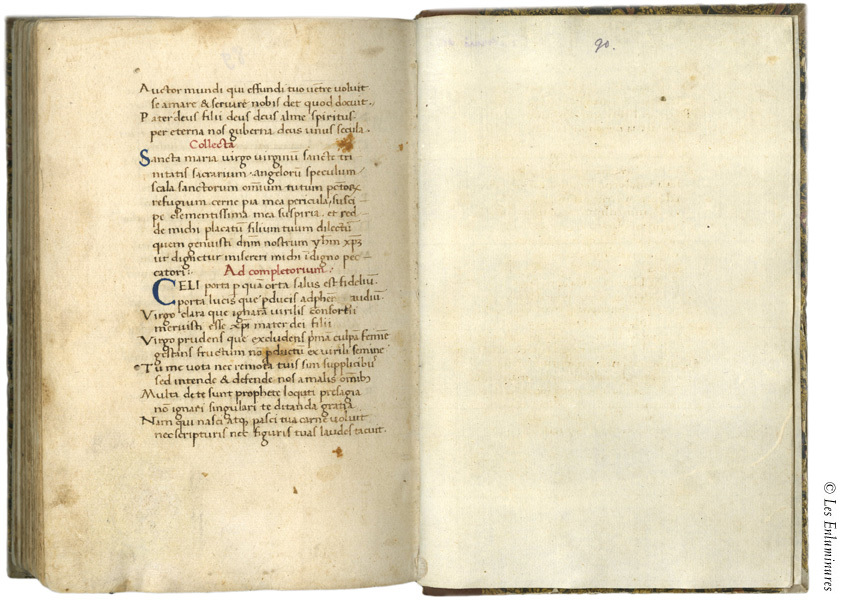 Auctor mundi qui effundi tuo uētre uoluit
se amare & seruire nobis det quod docuit.
Pater deus filii deus deus alme spiritus
per eterna nos guberna deus unus secula.
Collecta
Sancta maria uirgo uirginū sancte tri
nitatis sacrarium. angelorū speculum
scala sanctorum omīum tutum
refugium cerne pia mea pericula, susci
pe clementissima mea suspiria. et red
de michi placatū filium tuum dilectū
quem genuisti dn̄m nostrum yhm xp̄z
ut dignetur misereri michi īdigno pec
catori:
Ad completorium.
CELI porta p quā orta salus est fidelium
porta lucis que pducis
Virgo clara que ignara uirilis consortii
meruisti esse xp̄i mater dei filii
Virgo prudens que excludens p̄mā culpā femine
gestans fructum nō pductū ex uirili semine
Tu me uota nec remota tuis sūn supplicibus
sed intende & defende nos a malis omībꝫ
Multa de te sunt prophete locuti presagia
nō ignari singulari te ditandā gratia
Nam qui nasci atqꝫ pasci tua carne uoluit
nec scripturis nec figuris tuas laudes tacuit.
90.
© Les Enluminures